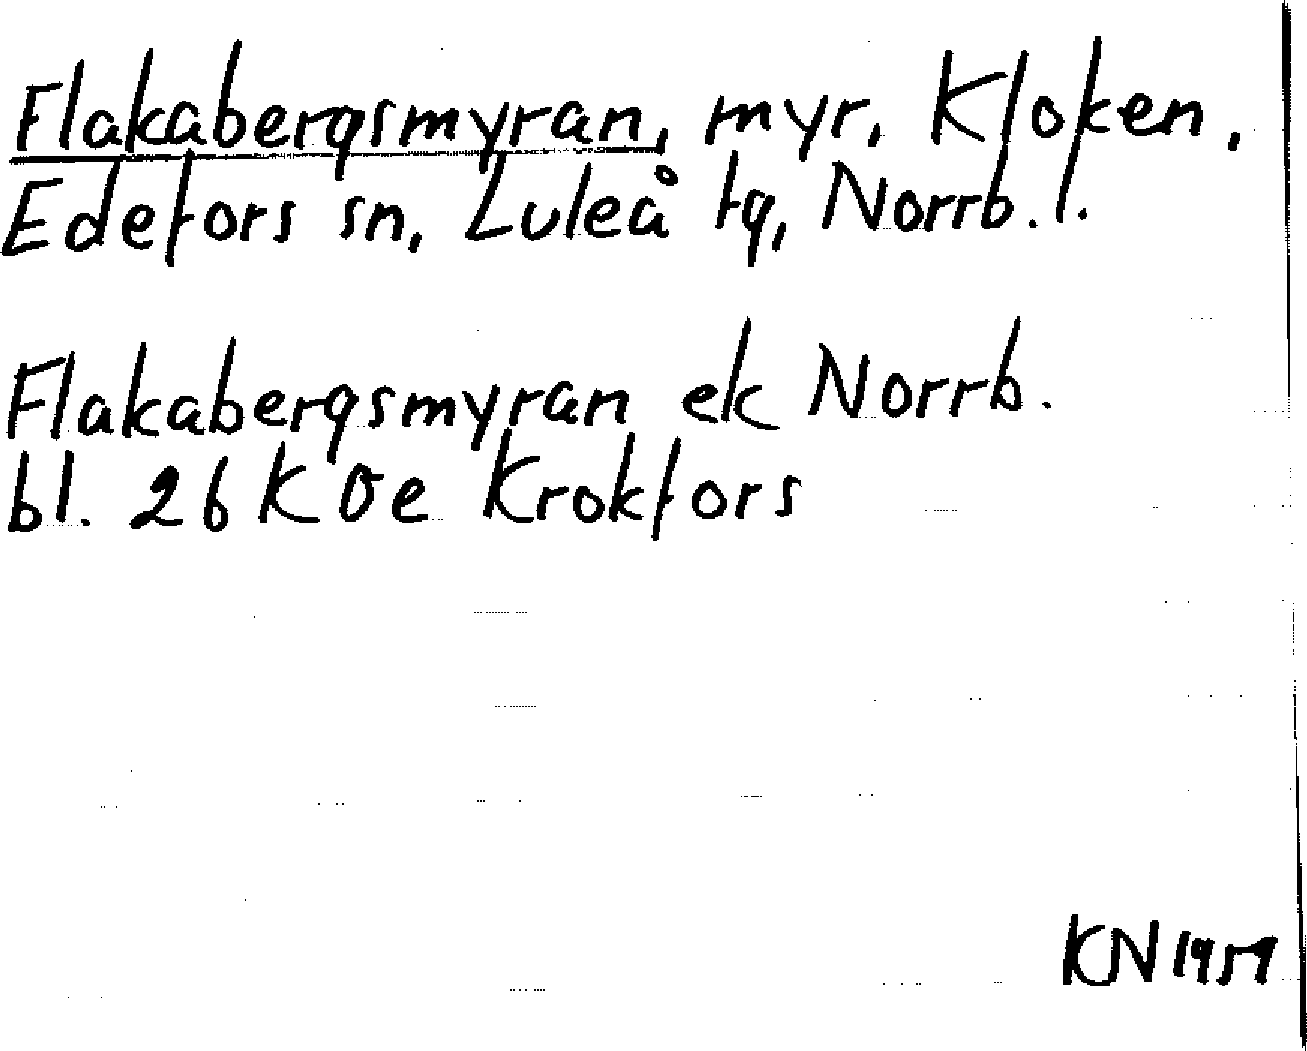 Flakabergsmyran, myr, Kloken,
Edefors sn, Luleå tg, Norrb. l.
Flakabergsmyran ek Norrb.
bl. 26 K Öe Krokfors
KN 1959